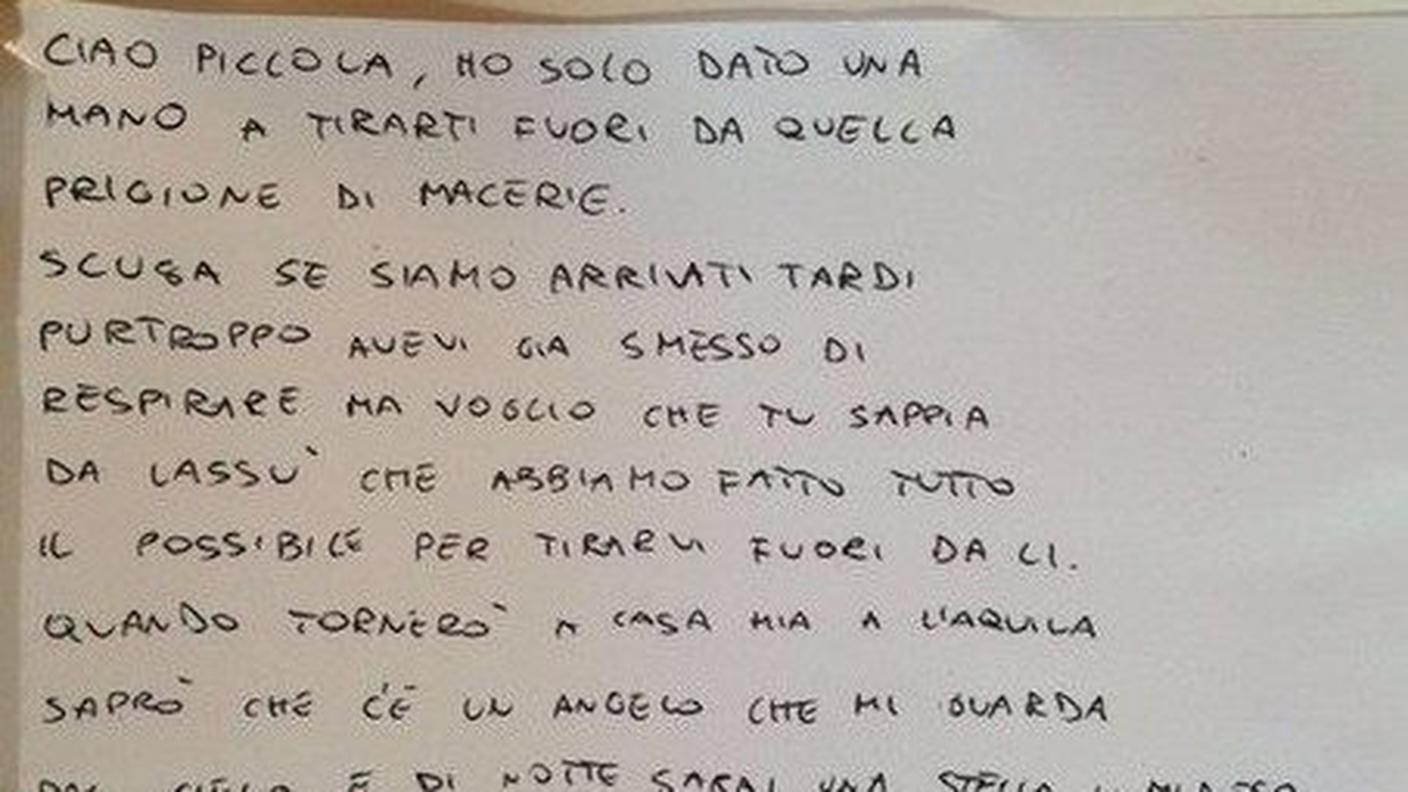 CIAO PICCOLA, HO SOLO DATO UNA
MANO A TIRARTI FUORI DA QUELLA
PRIGIONE DI MACERIE.
SCUSA SE SIAMO ARRIVATI TARDI
PURTROPPO AVEVI GIA SMESSO DI
RESPIRARE MA VOGLIO CHE TU SAPPIA
DA LASSU` CHE ABBIAMO FATTO TUTTO
IL POSSIBILE PER TIRARVI FUORI DA LI.
QUANDO TORNERO` A CASA MIA A L'AQUILA
SAPRO` CHE C'È UN ANGELO CHE MI GUARDA
DAL CIELO E DI NOTTE SARAI UNA STELLA